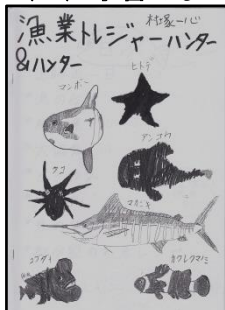 漁業トレジャーハンター
&ハンター
ヒトデ
マンボー
アンコウ
タコ
マカジキ
コブダイ
カクレクマノミ